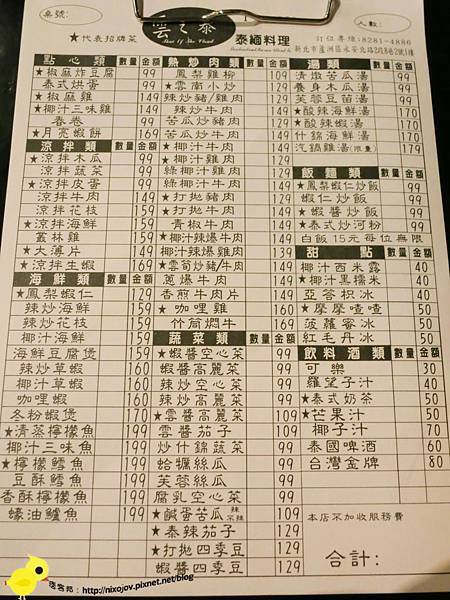 桌號:
人數:
★代表招牌菜
雲之泰
泰緬料理
訂位專線:8281-4886
新北市蘆洲區永安北路2段8巷2號1樓
點心類 數量 金額
★椒麻炸豆腐 99
泰式烘蛋 99
★椒麻雞 149
★椰汁三味雞 149
春卷 99
★月亮蝦餅 169
涼拌類 數量 金額
★涼拌木瓜 99
涼拌蔬菜 99
★涼拌皮蛋 99
涼拌牛肉 149
涼拌花枝 159
★涼拌海鮮 159
叢林雞 159
★大薄片 149
★涼拌生蝦 169
海鮮類 數量 金額
★鳳梨蝦仁 129
辣炒海鮮 159
辣炒花枝 159
椰汁海鮮 159
海鮮豆腐煲 159
辣炒草蝦 160
椰汁草蝦 160
咖哩蝦 160
冬粉蝦煲 170
★清蒸檸檬魚 199
椰汁三味魚 199
★檸檬鱈魚 199
豆酥鱈魚 199
香酥檸檬魚 199
蠔油鱸魚 199
熱炒肉類 數量 金額
鳳梨雞柳 109
★雲南小炒 109
辣炒豬/雞肉 109
辣炒牛肉 129
苦瓜炒豬肉 109
苦瓜炒牛肉 129
★椰汁牛肉 149
★椰汁雞肉 129
綠椰汁雞肉 129
綠椰汁牛肉 149
★打拋豬肉 109
★打拋牛肉 129
青椒牛肉 129
★椰汁辣爆牛肉 149
椰汁辣爆雞肉 129
★雲筍炒豬/牛肉 129
蔥爆牛肉 139
香煎牛肉片 149
★咖哩雞 169
竹筒燜牛 169
蔬菜類 數量 金額
★蝦醬空心菜 99
蝦醬高麗菜 99
辣炒空心菜 99
辣炒高麗菜 99
★雲醬高麗菜 109
雲醬茄子 109
炒什錦蔬菜 99
蛤蠣絲瓜 99
芙蓉絲瓜 99
腐乳空心菜 99
★鹹蛋苦瓜 辣 不辣 109
★泰辣茄子 129
★打拋四季豆 129
蝦醬四季豆 129
湯類 數量 金額
清燉苦瓜湯 99
養身木瓜湯 99
芙蓉豆苗湯 99
★酸辣海鮮湯 170
★酸辣蝦湯 170
什錦海鮮湯 170
汽鍋雞湯(限量) 179
飯麵類 數量 金額
★鳳梨蝦仁炒飯
蝦仁炒飯
★蝦醬炒飯
★泰式炒河粉
白飯15元每位無限
甜點 數量 金額
椰汁西米露 40
★椰汁黑糯米 40
亞答枳冰 40
★摩摩喳喳 50
菠蘿蜜冰 50
紅毛丹冰 50
飲料酒類 數量 金額
可樂 30
羅望子汁 40
★泰式奶茶 50
★芒果汁 50
椰子汁 70
泰國啤酒 60
台灣金牌 80
本店不加收服務費
合計:
痞客邦:http://nixojov.pixnet.net/blog